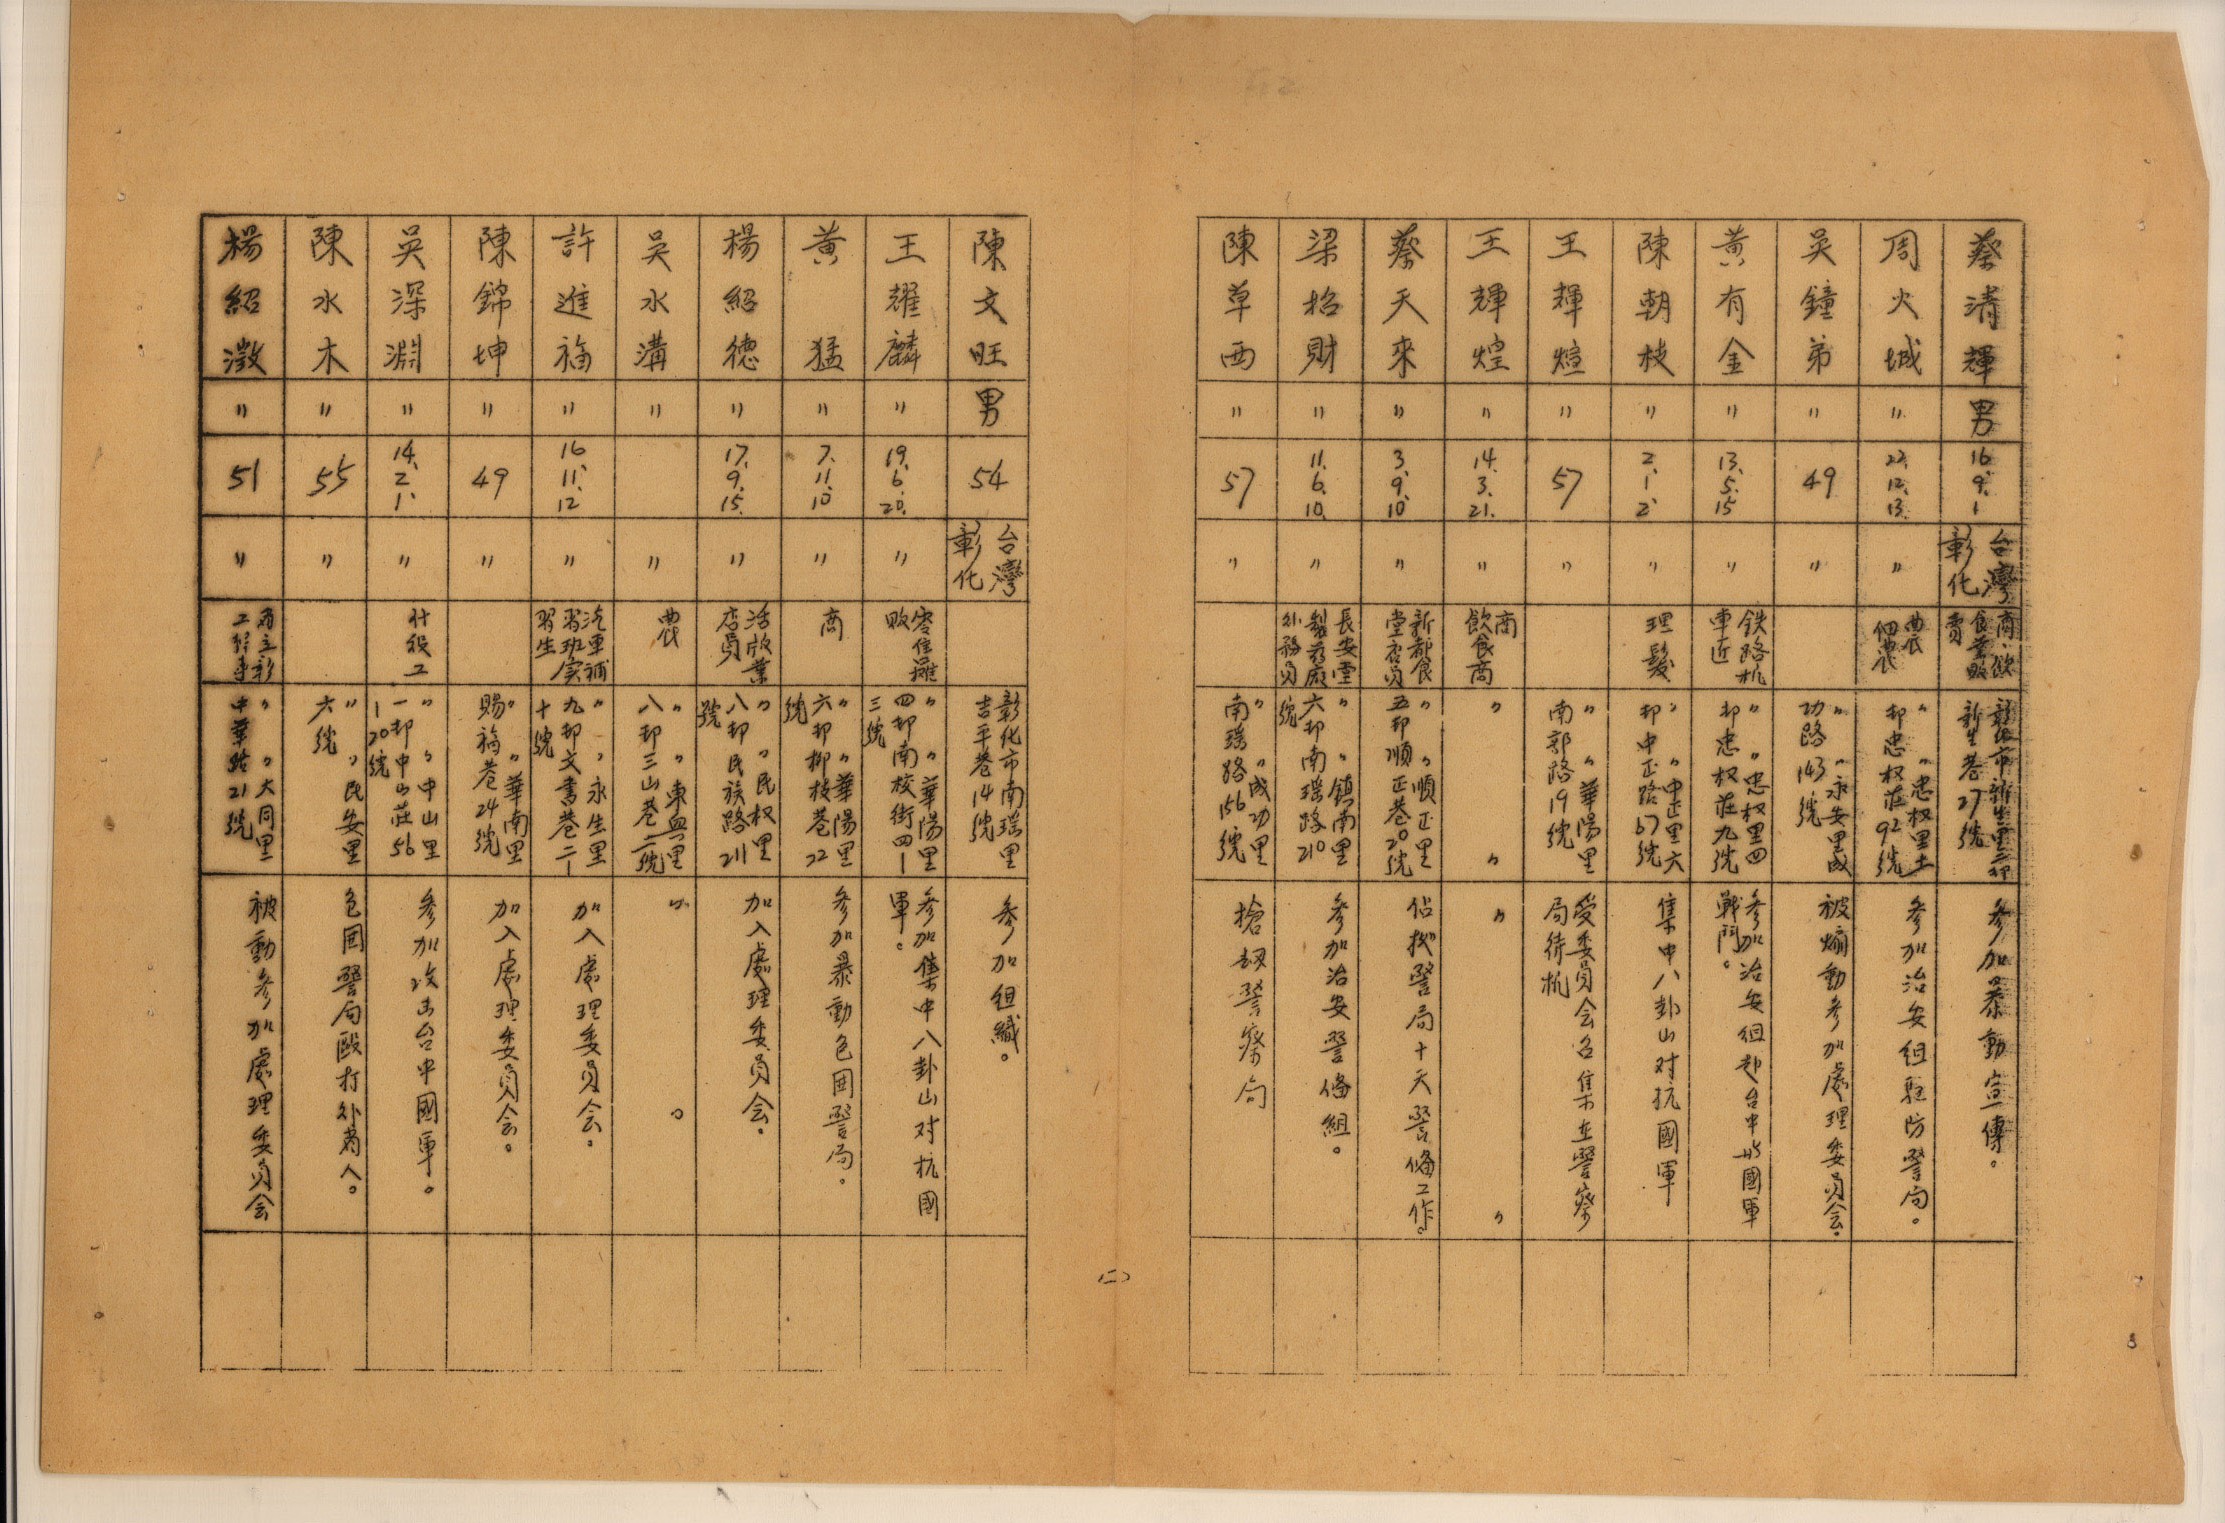 蔡清輝 男 16.9.1 台灣彰化 商、飲食業販賣 彰化市新生里二邻新生巷27號 參加暴動宣傳。
周火城 〃 22.12.13. 〃 農 佃農 〃 〃忠权里土邻忠权莊92號 參加治安組駐防警局。
吳鐘弟 〃 49 〃 〃 〃永安里成功路143號 被煽動參加處理委員会。
黃有金 〃 13.5.15 〃 鉄路机車匠 〃 〃忠权里四邻忠权莊九號 參加治安組赴台中與國軍戰鬥。
陳朝枝 〃 2.1.2 〃 理髮 〃 〃中正里六邻中正路67號 集中八卦山对抗國軍
王輝煊 〃 57 〃 〃 〃華陽里南郭路19號 受委員会召集在警察局待机
王輝煌 〃 14.3.21. 〃 商 飲食商 〃 〃 〃 〃
蔡天來 〃 3.9.10 〃 新都食堂店員 〃 〃順正里五邻順正巷20號 佔扰警局十天警俻工作。
梁招財 〃 11.6.10. 〃 長安堂製葯廠外務員 〃 〃鎮南里六邻南瑶路210號 參加治安警俻組。
陳草西 〃 57 〃 〃 〃成功里南瑶路156號 搶劫警察局
(二)
陳文旺 男 54 台灣彰化 彰化市南瑶里吉平巷14號 參加組織。
王耀麟 〃 19.6.20. 〃 零售攤販 〃 〃華陽里四邻南校街四一三號 參加集中八卦山对抗國軍。
黃猛 〃 7.11.10 〃 商 〃 〃華陽里六邻柳枝巷22號 參加暴動包囲警局。
楊紹德 〃 17.9.15. 〃 店員 〃 〃民权里八邻民族路211號 加入處理委員会。
吳水溝 〃 〃 農 〃 〃東興里八邻三山巷二號 〃 。
許進福 〃 16.11.12 〃 汽車補習班实習生 〃 〃永生里九邻文書巷二一十號 加入處理委員会。
陳錦坤 〃 49 〃 〃 〃華南里賜福巷24號 加入處理委員会。
吳深淵 〃 14.2.1. 〃 什役工 〃 〃中山里一邻中山莊56-20號 參加攻击台中國軍。
陳水木 〃 55 〃 〃 〃民安里六號 包囲警局毆打外省人。
楊紹澂 〃 51 〃 〃 〃大同里中華路21號 被動參加處理委員会